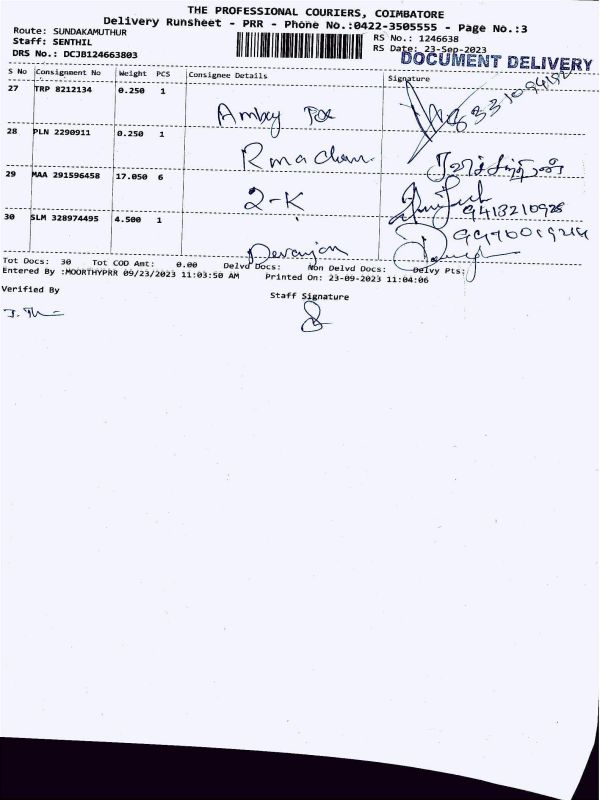 THE PROFESSIONAL COURIERS, COIMBATORE
Delivery Runsheet - PRR - Phone No.:0422-3505555 - Page No.:3
Route: SUNDAKAMUTHUR
Staff: SENTHIL
RS No.: 1246638
DRS No.: DCJB124663803
RS Date: 23-Sep-2023
DOCUMENT DELIVERY
S No Consignment No Weight PCS Consignee Details Signature
27 TRP 8212134 0.250 1
28 PLN 2290911 0.250 1
29 MAA 291596458 17.050 6
2-K
9413210928
30 SLM 328974495 4.500 1
Devarajan
Tot Docs: 30 Tot COD Amt: 0.00 Delvd Docs: Non Delvd Docs: Delvy Pts:
Entered By :MOORTHYPRR 09/23/2023 11:03:50 AM Printed On: 23-09-2023 11:04:06
Verified By
Staff Signature